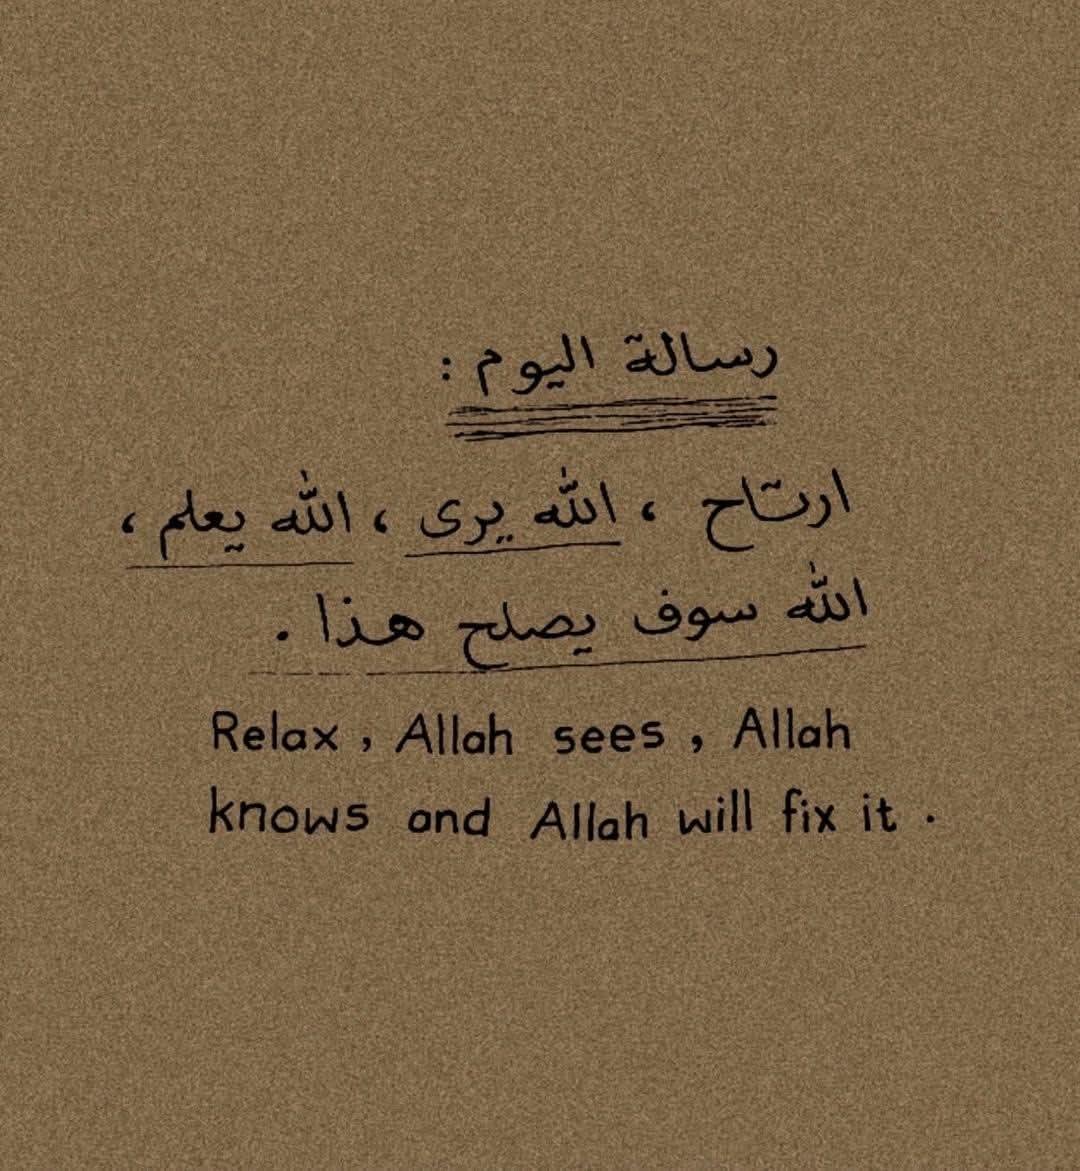 رسالة اليوم :
ارتاح ، الله يرى ، الله يعلم ،
الله سوف يصلح هذا .
Relax , Allah sees , Allah
knows and Allah will fix it .